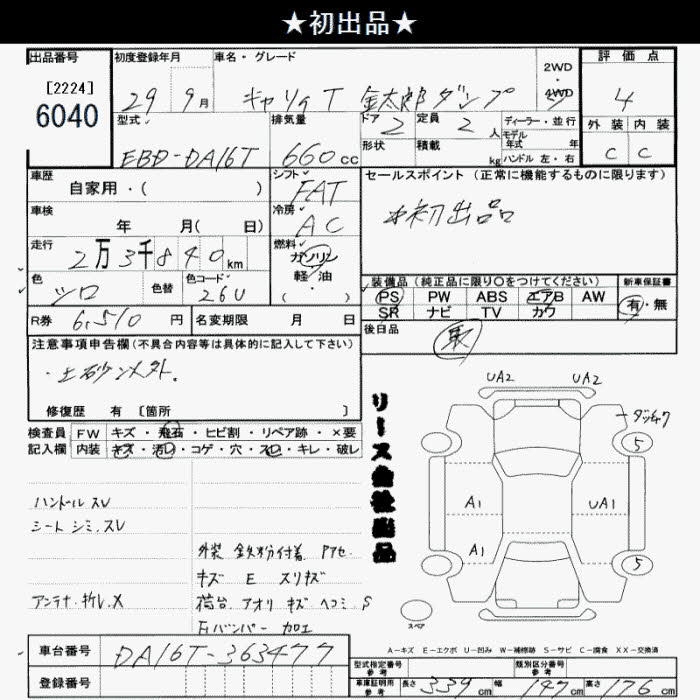 ★初出品★
出品番号
[2224]
6040
初度登録年月
29 9月
車名・グレード
キャリィT 金太郎ダンプ
2WD
・
4WD
評価点
4
型式
EBD-DA16T
排気量
660cc
ドア 2
定員 2人
ディーラー・並行
モデル年式 年
形状
積載 kg
ハンドル 左・右
外装 内装
C C
車歴
自家用・( )
シフト
FAT
セールスポイント (正常に機能するものに限ります)
初出品
車検
年 月( 日)
冷房
AC
走行
2万3千840km
燃料
ガソリン
軽・油
( )
色
シロ
色替
色コード
26U
装備品 (純正品に限り○をつけてください)
PS PW ABS エアB AW
SR ナビ TV カワ
新車保証書
有・無
R券 6,510円
名変期限 月 日
後日品
取
注意事項申告欄 (不具合内容等は具体的に記入して下さい)
・土砂以外.
修復歴 有 [箇所 ]
検査員
記入欄
FW キズ・飛石・ヒビ割・リペア跡・×要
内装 キズ・汚レ・コゲ・穴・スレ・キレ・破レ
リース会社出品
ハンドルスレ
シートシミ.スレ
アンテナ.折レ.X
外装 鉄粉付着 Pアセ
キズ E スリキズ
荷台 アオリ キズ ヘコミ S
Frバンパー 加工
UA2 UA2
5
A1 UA1
A1
5
スペア
A-キズ E-エクボ U-凹み W-補修跡 S-サビ C-腐食 XX-交換済
車台番号 DA16T-363477
登録番号
型式指定番号
参考
類別区分番号
参考
車庫証明用
参考
長さ 339cm 幅 147cm 高さ 176cm